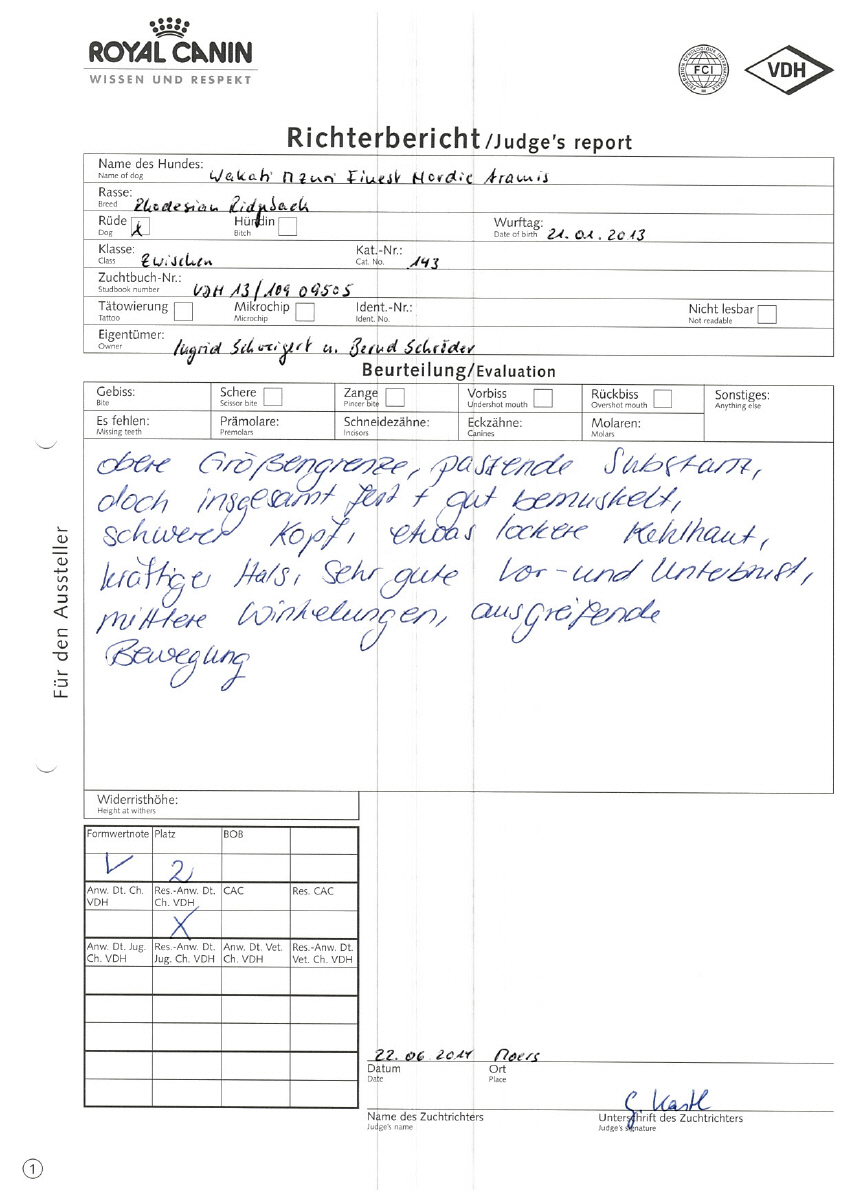 ROYAL CANIN
WISSEN UND RESPEKT
FCI
VDH
Richterbericht/Judge's report
Name des Hundes: Wakati Mzuri Finest Nordic Aramis
Name of dog
Rasse: Rhodesian Ridgback
Breed
Rüde x Hündin Wurftag: 21.01.2013
Dog Bitch Date of birth
Klasse: Zwischen Kat.-Nr.: 143
Class Cat. No.
Zuchtbuch-Nr.: VDH 13/109 09505
Studbook number
Tätowierung Mikrochip Ident.-Nr.: Nicht lesbar
Tattoo Microchip Ident. No. Not readable
Eigentümer: Ingrid Schweigert u. Bernd Schröder
Owner
Beurteilung/Evaluation
Gebiss: Schere Zange Vorbiss Rückbiss Sonstiges:
Bite Scissor bite Pincer bite Undershot mouth Overshot mouth Anything else
Es fehlen: Prämolare: Schneidezähne: Eckzähne: Molaren:
Missing teeth Premolars Incisors Canines Molars
obere Größengrenze, passende Substanz,
doch insgesamt fest + gut bemuskelt,
schwerer Kopf, etwas lockere Kehlhaut,
kräftiger Hals, sehr gute Vor- und Unterbrust,
mittlere Winkelungen, ausgreifende
Bewegung
Für den Aussteller
Widerristhöhe:
Height at withers
Formwertnote Platz BOB
V 2
Anw. Dt. Ch. VDH Res.-Anw. Dt. Ch. VDH CAC Res. CAC
X
Anw. Dt. Jug. Ch. VDH Res.-Anw. Dt. Jug. Ch. VDH Anw. Dt. Vet. Ch. VDH Res.-Anw. Dt. Vet. Ch. VDH
22.06.2014 Moers
Datum Ort
Date Place
G. Kastl
Name des Zuchtrichters Unterschrift des Zuchtrichters
Judge's name Judge's signature
1